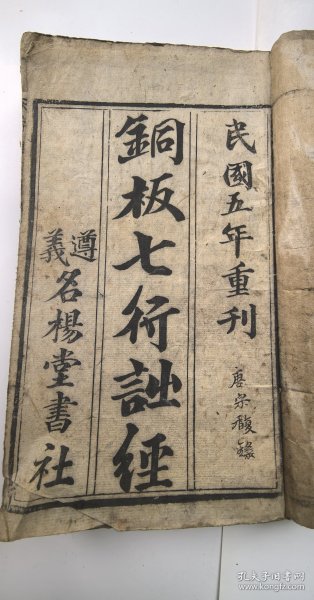 民國五年重刊
銅板七行詩經
遵義
名楊堂書社
孔夫子旧书网